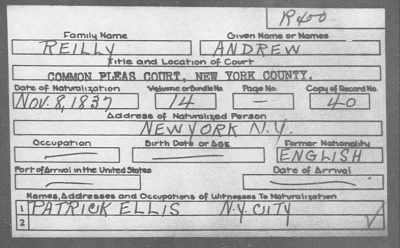 R400
Family Name Given Name or Names
REILLY ANDREW
Title and Location of Court
COMMON PLEAS COURT, NEW YORK COUNTY.
Date of Naturalization Volume or Bundle No Page No. Copy of Record No.
NOV. 8, 1837 14 — 40
Address of Naturalized Person
NEW YORK N.Y.
Occupation Birth Date or Age Former Nationality
— — ENGLISH
Port of Arrival in the United States Date of Arrival
— —
Names, Addresses and Occupations of Witnesses To Naturalization
1 PATRICK ELLIS N.Y. CITY
2